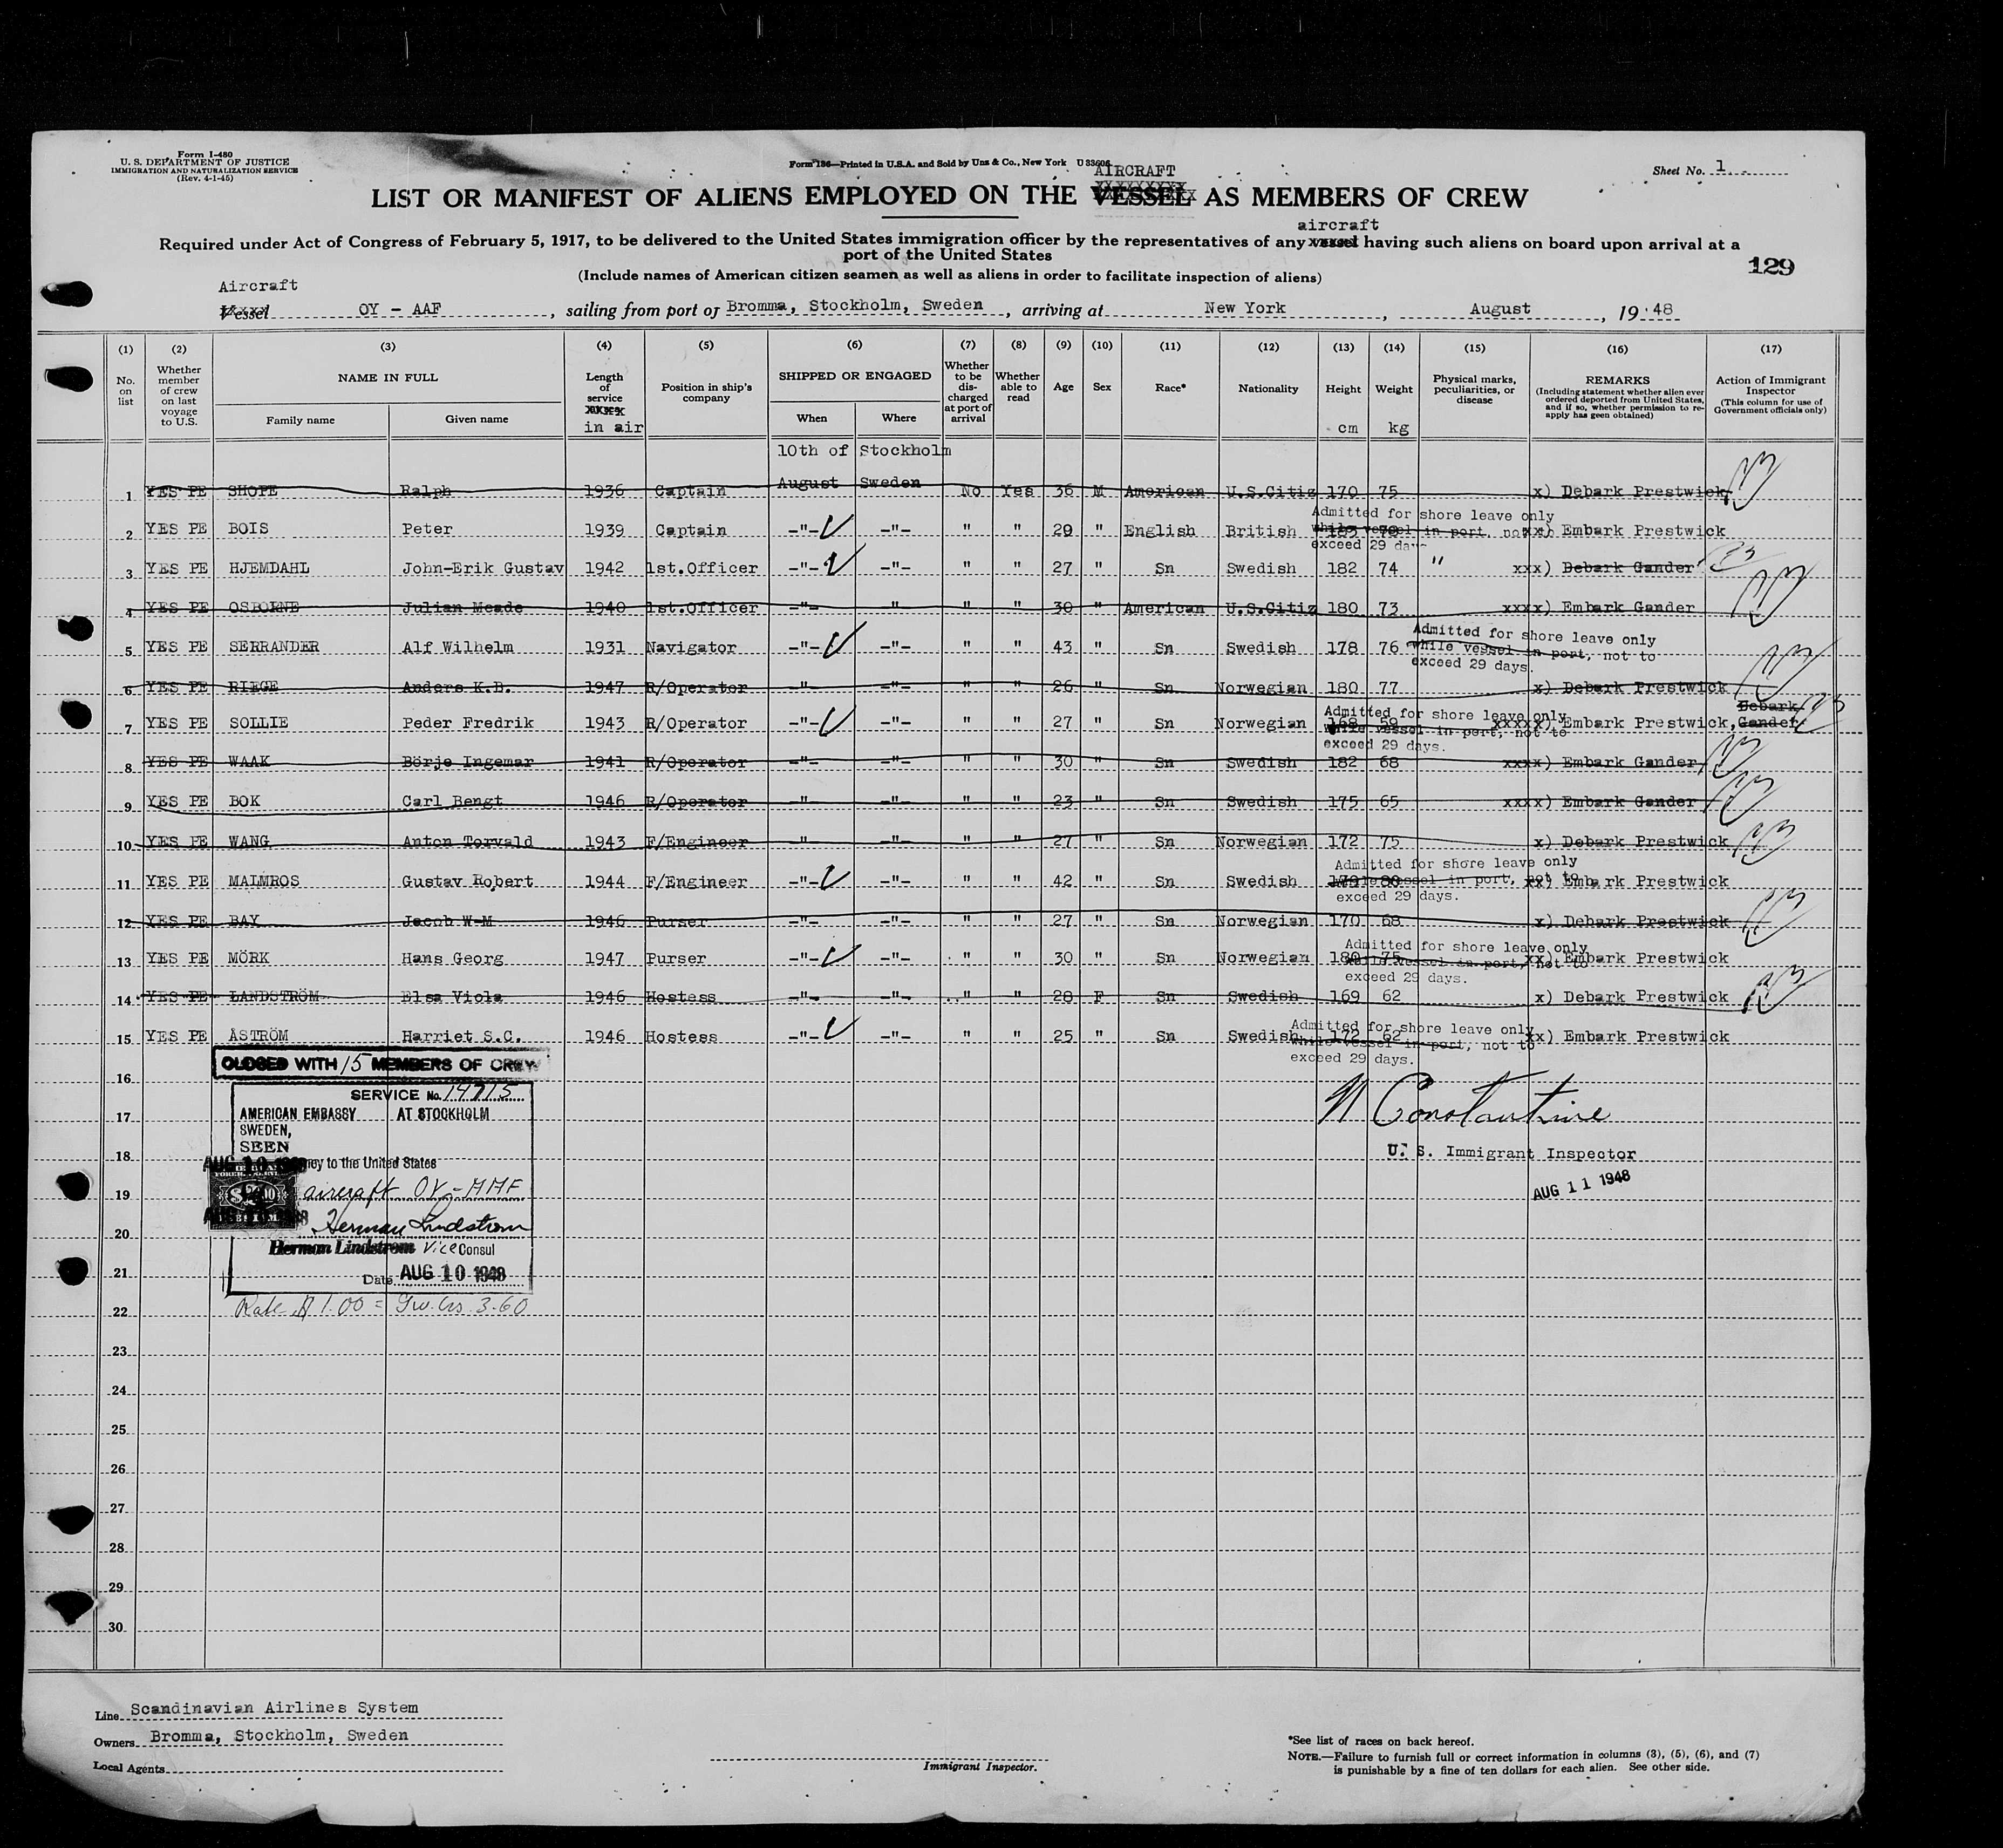 Form I-480
U. S. DEPARTMENT OF JUSTICE
IMMIGRATION AND NATURALIZATION SERVICE
(Rev. 4-1-45)
Form 186—Printed in U.S.A. and Sold by Unz & Co., New York U 33606
Sheet No. 1.
AIRCRAFT
LIST OR MANIFEST OF ALIENS EMPLOYED ON THE VESSEL AS MEMBERS OF CREW
aircraft
Required under Act of Congress of February 5, 1917, to be delivered to the United States immigration officer by the representatives of any vessel having such aliens on board upon arrival at a
port of the United States
129
(Include names of American citizen seamen as well as aliens in order to facilitate inspection of aliens)
Aircraft
Vessel OY - AAF, sailing from port of Bromma, Stockholm, Sweden, arriving at New York, August, 19 48
(1) (2) (3) (4) (5) (6) (7) (8) (9) (10) (11) (12) (13) (14) (15) (16) (17)
No. on list
Whether member of crew on last voyage to U.S.
NAME IN FULL
Family name Given name
Length of service in air
Position in ship's company
SHIPPED OR ENGAGED
When Where
Whether to be discharged at port of arrival
Whether able to read
Age
Sex
Race*
Nationality
Height cm
Weight kg
Physical marks, peculiarities, or disease
REMARKS
(Including statement whether alien ever ordered deported from United States, and if so, whether permission to reapply has been obtained)
Action of Immigrant Inspector
(This column for use of Government officials only)
10th of Stockholm
1 YES PE SHOPE Ralph 1936 Captain August Sweden No Yes 36 M American U.S.Citiz 170 75 x) Debark Prestwick
Admitted for shore leave only
2 YES PE BOIS Peter 1939 Captain -"- -"- " " 29 " English British while vessel in port, not to xx) Embark Prestwick
exceed 29 days
3 YES PE HJEMDAHL John-Erik Gustav 1942 1st.Officer -"- -"- " " 27 " Sn Swedish 182 74 " xxx) Debark Gander
4 YES PE OSBORNE Julian Meade 1940 1st.Officer -"- " " " 30 " American U.S.Citiz 180 73 xxxx) Embark Gander
Admitted for shore leave only
5 YES PE SERRANDER Alf Wilhelm 1931 Navigator -"- -"- " " 43 " Sn Swedish 178 76 while vessel in port, not to
exceed 29 days.
6 YES PE RIEGE Anders K.B. 1947 R/Operator -"- -"- " " 26 " Sn Norwegian 180 77 x) Debark Prestwick
Admitted for shore leave only Debark
7 YES PE SOLLIE Peder Fredrik 1943 R/Operator -"- -"- " " 27 " Sn Norwegian 168 59 while vessel in port, not to xxxxx) Embark Prestwick, Gander
exceed 29 days.
8 YES PE WAAK Börje Ingemar 1941 R/Operator -"- -"- " " 30 " Sn Swedish 182 68 xxxx) Embark Gander
9 YES PE BOK Carl Bengt 1946 R/Operator -"- -"- " " 23 " Sn Swedish 175 65 xxxx) Embark Gander
10 YES PE WANG Anton Torvald 1943 F/Engineer -"- -"- " " 27 " Sn Norwegian 172 75 x) Debark Prestwick
Admitted for shore leave only
11 YES PE MALMROS Gustav Robert 1944 F/Engineer -"- -"- " " 42 " Sn Swedish while vessel in port, not to xx) Embark Prestwick
exceed 29 days.
12 YES PE BAY Jacob W-M 1946 Purser -"- -"- " " 27 " Sn Norwegian 170 68 x) Debark Prestwick
Admitted for shore leave only
13 YES PE MÖRK Hans Georg 1947 Purser -"- -"- " " 30 " Sn Norwegian 180 75 while vessel in port, not to xx) Embark Prestwick
exceed 29 days.
14 YES PE LANDSTRÖM Elsa Viola 1946 Hostess -"- -"- " " 28 F Sn Swedish 169 62 x) Debark Prestwick
Admitted for shore leave only
15 YES PE ÅSTRÖM Harriet S.C. 1946 Hostess -"- -"- " " 25 " Sn Swedish 172 62 while vessel in port, not to xx) Embark Prestwick
exceed 29 days.
CLOSED WITH 15 MEMBERS OF CREW
16
SERVICE No. 14715
AMERICAN EMBASSY AT STOCKHOLM
17
N Constantine
SWEDEN,
SEEN
U. S. Immigrant Inspector
18
AUG 10 1948 ney to the United States
AUG 11 1948
19
aircraft OY-AAF
Herman Lindstrom
20
Herman Lindstrom Vice Consul
21
Date AUG 10 1948
Rate $ 1.00 = Sw. Crs. 3.60
22
23
24
25
26
27
28
29
30
Line Scandinavian Airlines System
Owners Bromma, Stockholm, Sweden
Local Agents
Immigrant Inspector.
*See list of races on back hereof.
NOTE.—Failure to furnish full or correct information in columns (3), (5), (6), and (7)
is punishable by a fine of ten dollars for each alien. See other side.